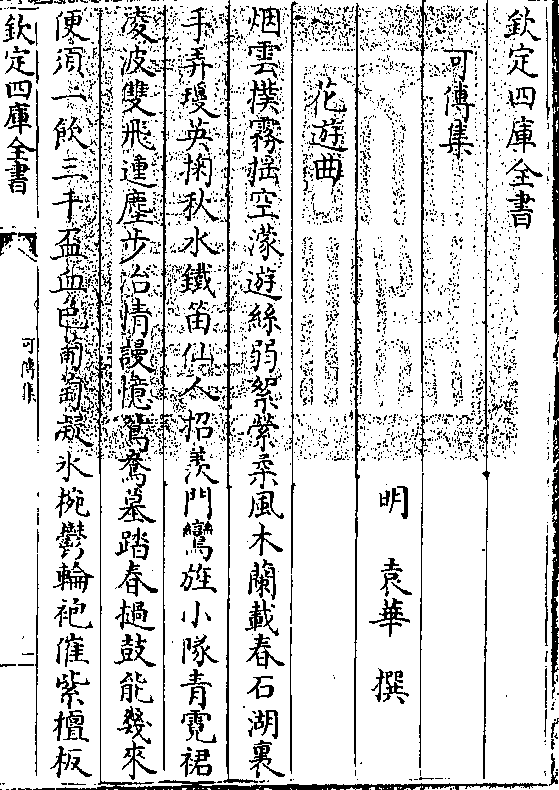 欽定四庫全書
可傳集
明 袁華 撰
花遊曲
烟雲撲霧揺空濛遊絲弱絮縈柔風木蘭載春石湖裏
手弄瓊英掬秋水鐵笛仙人招羨門鸞旌小隊青霓裙
凌波雙飛連塵步冶情謾憶鴛鴦墓踏春撾鼓能幾來
便須一飲三千盃血色葡萄凝水椀鬱輪袍催紫檀板
欽定四庫全書
可傳集
一